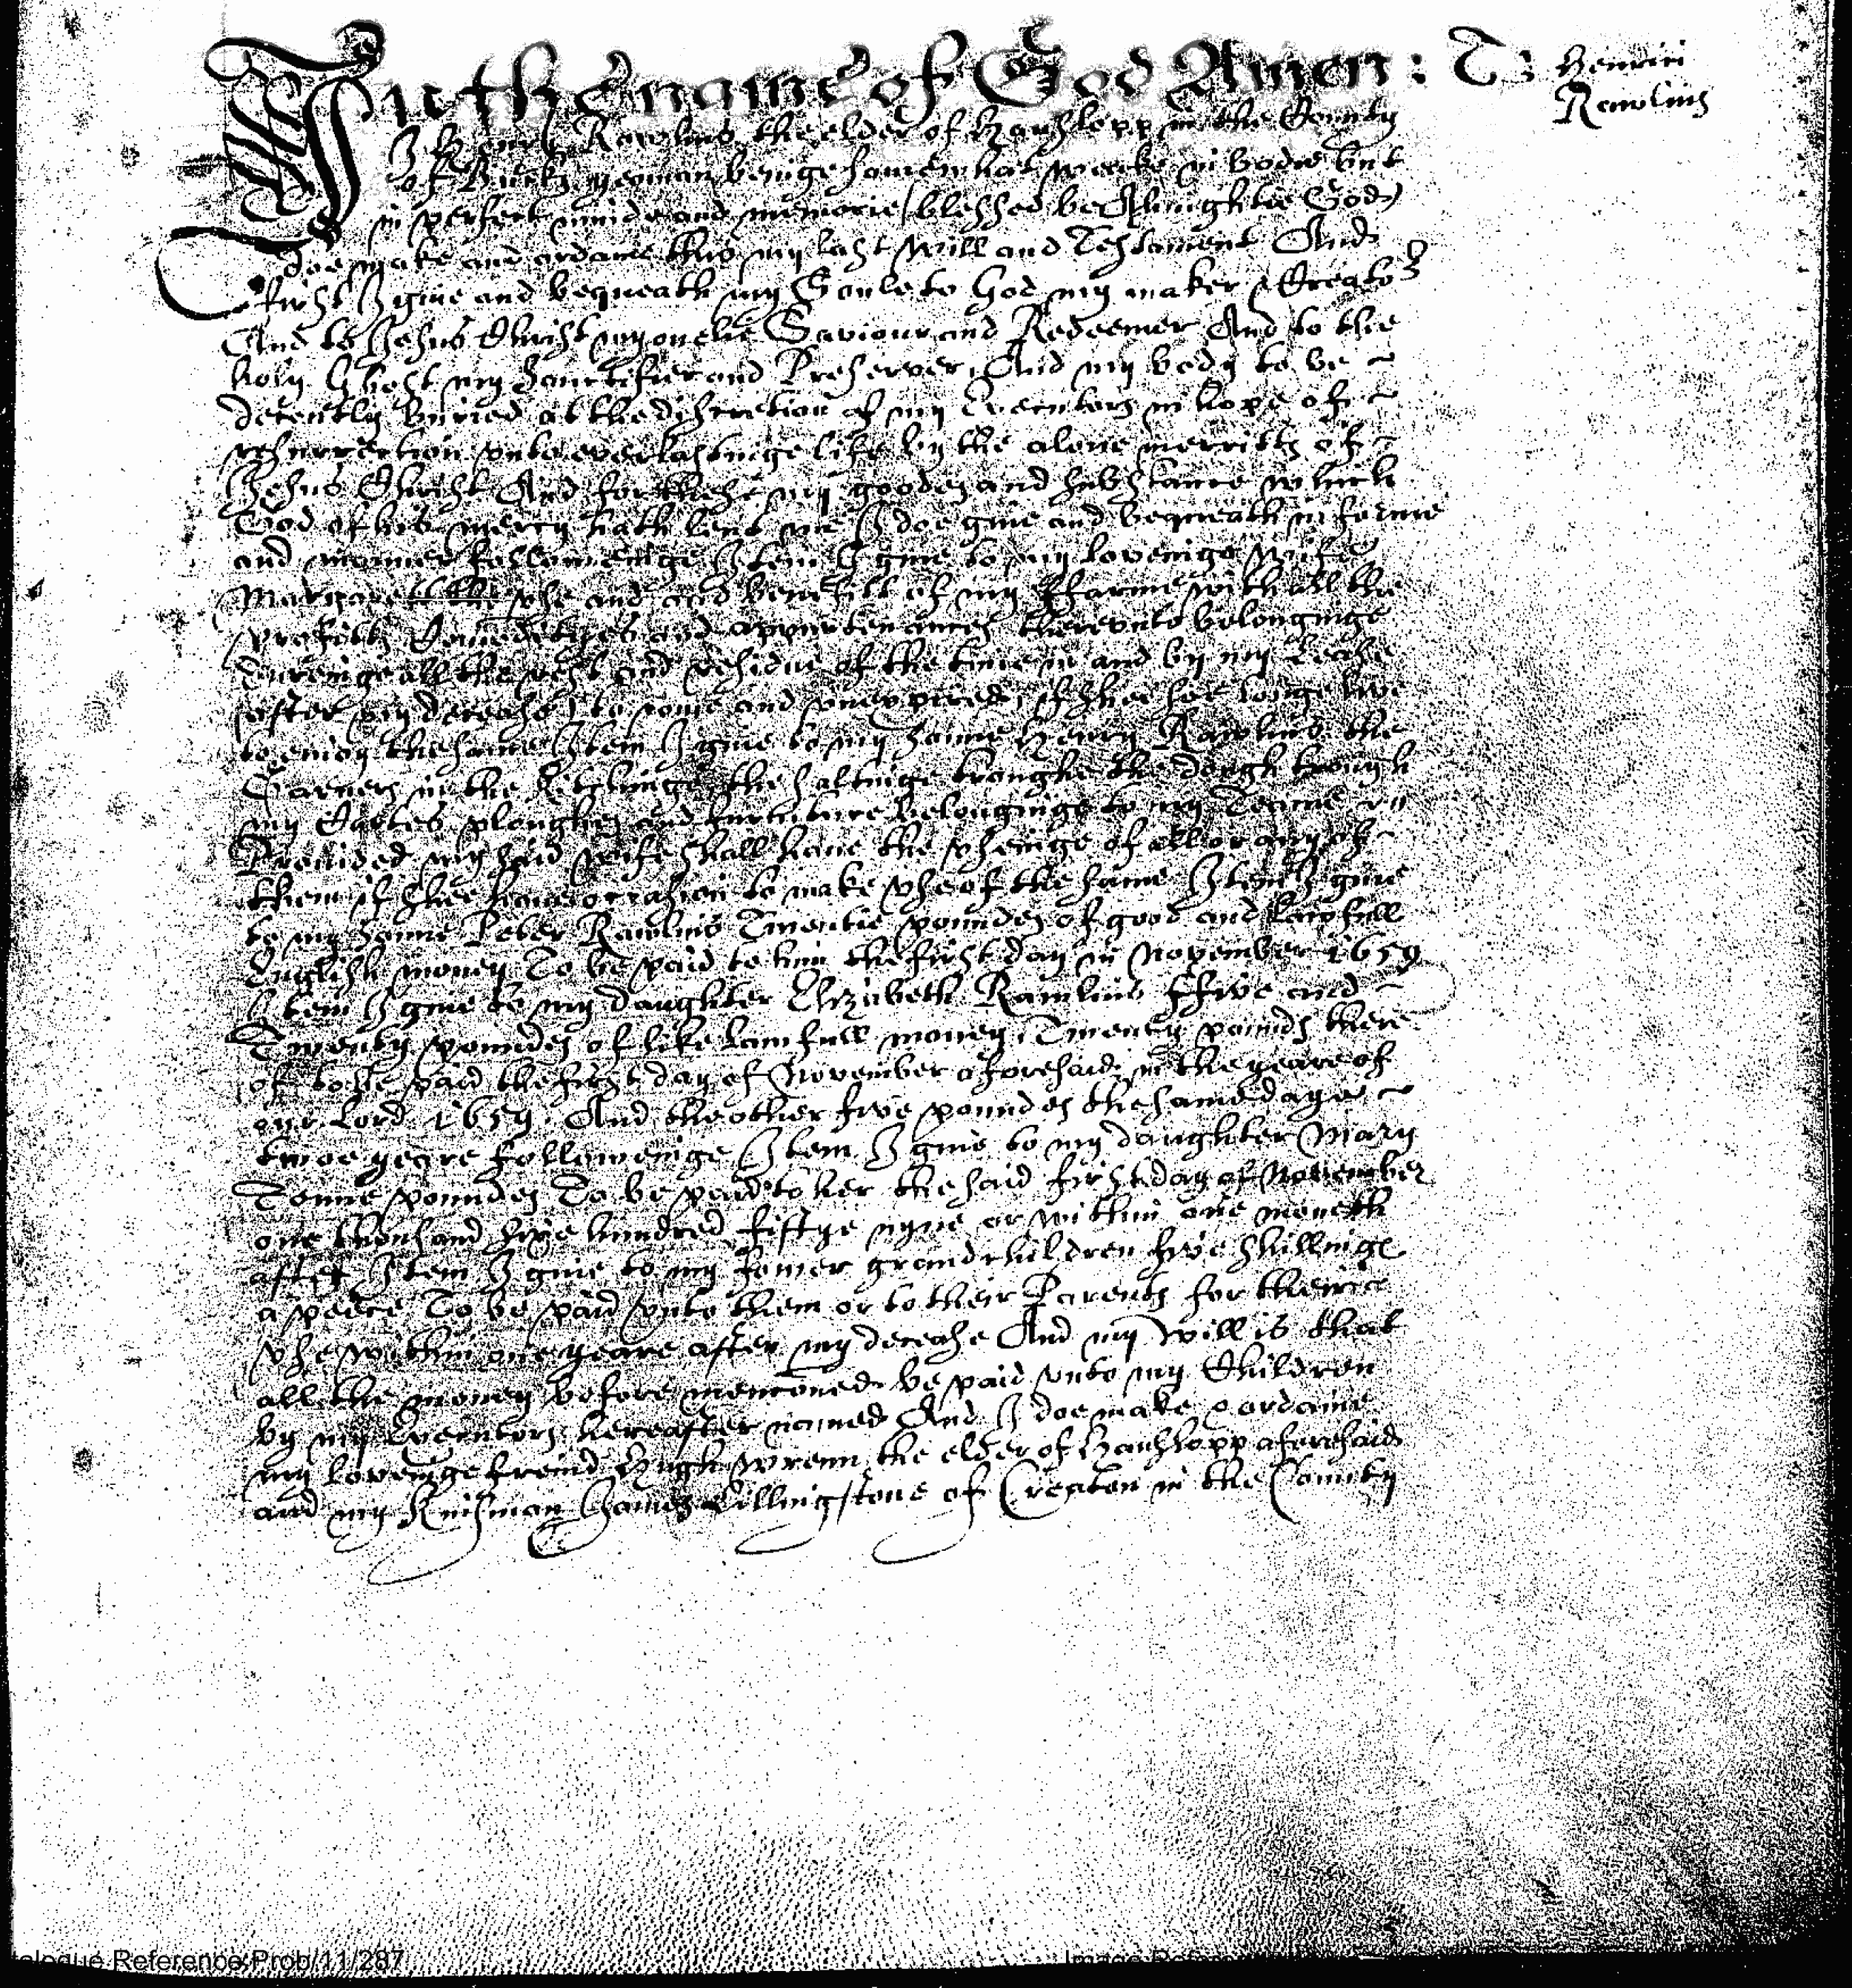 In the name of God Amen: T: Henrici
Rawlins
I Henry Rawlins the elder of Hanslopp in the County
of Bucks yeoman beinge somewhat weake in bodie but
in perfect minde and memorie (blessed be Almightie God)
doe make and ordaine this my last will and Testament And
first I give and bequeath my Soule to God my maker & Creator
And to Jesus Christ my onelie Saviour and Redeemer And to the
holy Ghost my Sanctifier and Preserver, And my body to be
decently buried at the discretion of my Executors in hope of
resurrection unto everlastinge life by the alone merritts of
Jesus Christ And for these my goodes and substance which
God of his mercy hath lent me I doe give and bequeath in forme
and manner followeinge Item I give to my loveinge wife
Margaret the use and benefitt of my ffarme with all the
profitts Comodityes and appurtenances thereunto belonginge
dureinge all the rest and residue of the time in and by my Lease
(after my decease) to come and unexpired, if shee soe longe live
to enioy the same Item I give to my sonne Henry Rawlins the
in the Kitchinge the saltinge troughe the dough trough
my Cartes ploughes and furniture belonginge to my Teame
Provided my said wife shall have the useinge of all or any of
them if shee have occasion to make use of the same Item I give
to my sonne Peter Rawlins Twentie poundes of good and lawfull
English money To be paid to him the first day in November 1659
Item I give to my daughter Elizabeth Rawlins ffive and
Twenty poundes of like lawfull money, Twenty pounds there
of to be paid the first day of November aforesaid, in the yeare of
our Lord 1659. And the other five poundes the same daye
twoe yeare followeinge Item I give to my daughter Mary
Tenne poundes To be paid to her the said first day of November
one thousand sixe hundred fiftye nyne or within one moneth
after Item I give to my fower grandchildren five shillinge
a peece To be paid unto them or to their Parents for their
use within one yeare after my decease And my will is that
all the money before mencioned be paid unto my Children
by my Executors hereafter named And I doe make & ordaine
my loveinge freind Hugh Wrenn the elder of Hanslopp aforesaid
and my Kinsman James of Creaton in the County
Catalogue Reference:Prob/11/287